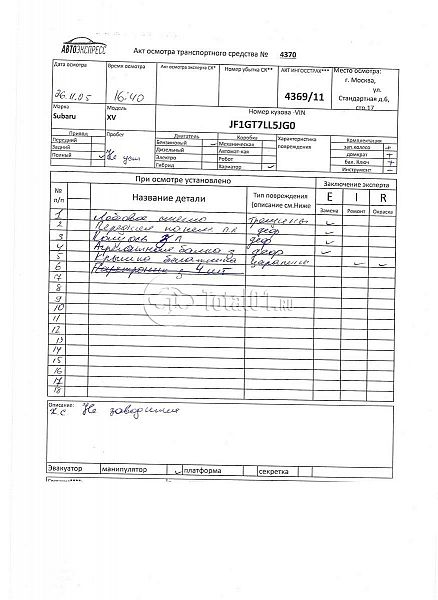 АВТОЭКСПРЕСС
Акт осмотра транспортного средства № 4370
Дата осмотра Время осмотра Акт осмотра эксперта СК* Номер убытка СК** АКТ ИНГОССТРАХ*** Место осмотра:
г. Москва,
ул.
Стандартная д.6,
стр.17
16:40 4369/11
Марка Модель Номер кузова -VIN
Subaru XV JF1GT7LL5JG0
Привод Пробег Двигатель Коробка Характеристика повреждения Комплектация
Передний Бензиновый Механическая зап.колесо +
Задний Дизельный Автомат-кая домкрат +
Полный Не уст Электро Робот бал. Ключ +
Гибрид Вариатор Инструмент −
№ п/п При осмотре установлено Заключение эксперта
Название детали Тип поврождения (описание см.Ниже E I R
Замена Ремонт Окраска
1 Лобовое стекло
2 деф
3 деф
4 деф
5 Крышка багажника царапины
6 Парктроник 4 шт
7
8
9
10
11
12
13
14
15
16
17
18
Total01.ru
Описание:
Не заводится
Эвакуатор манипулятор платформа секретка